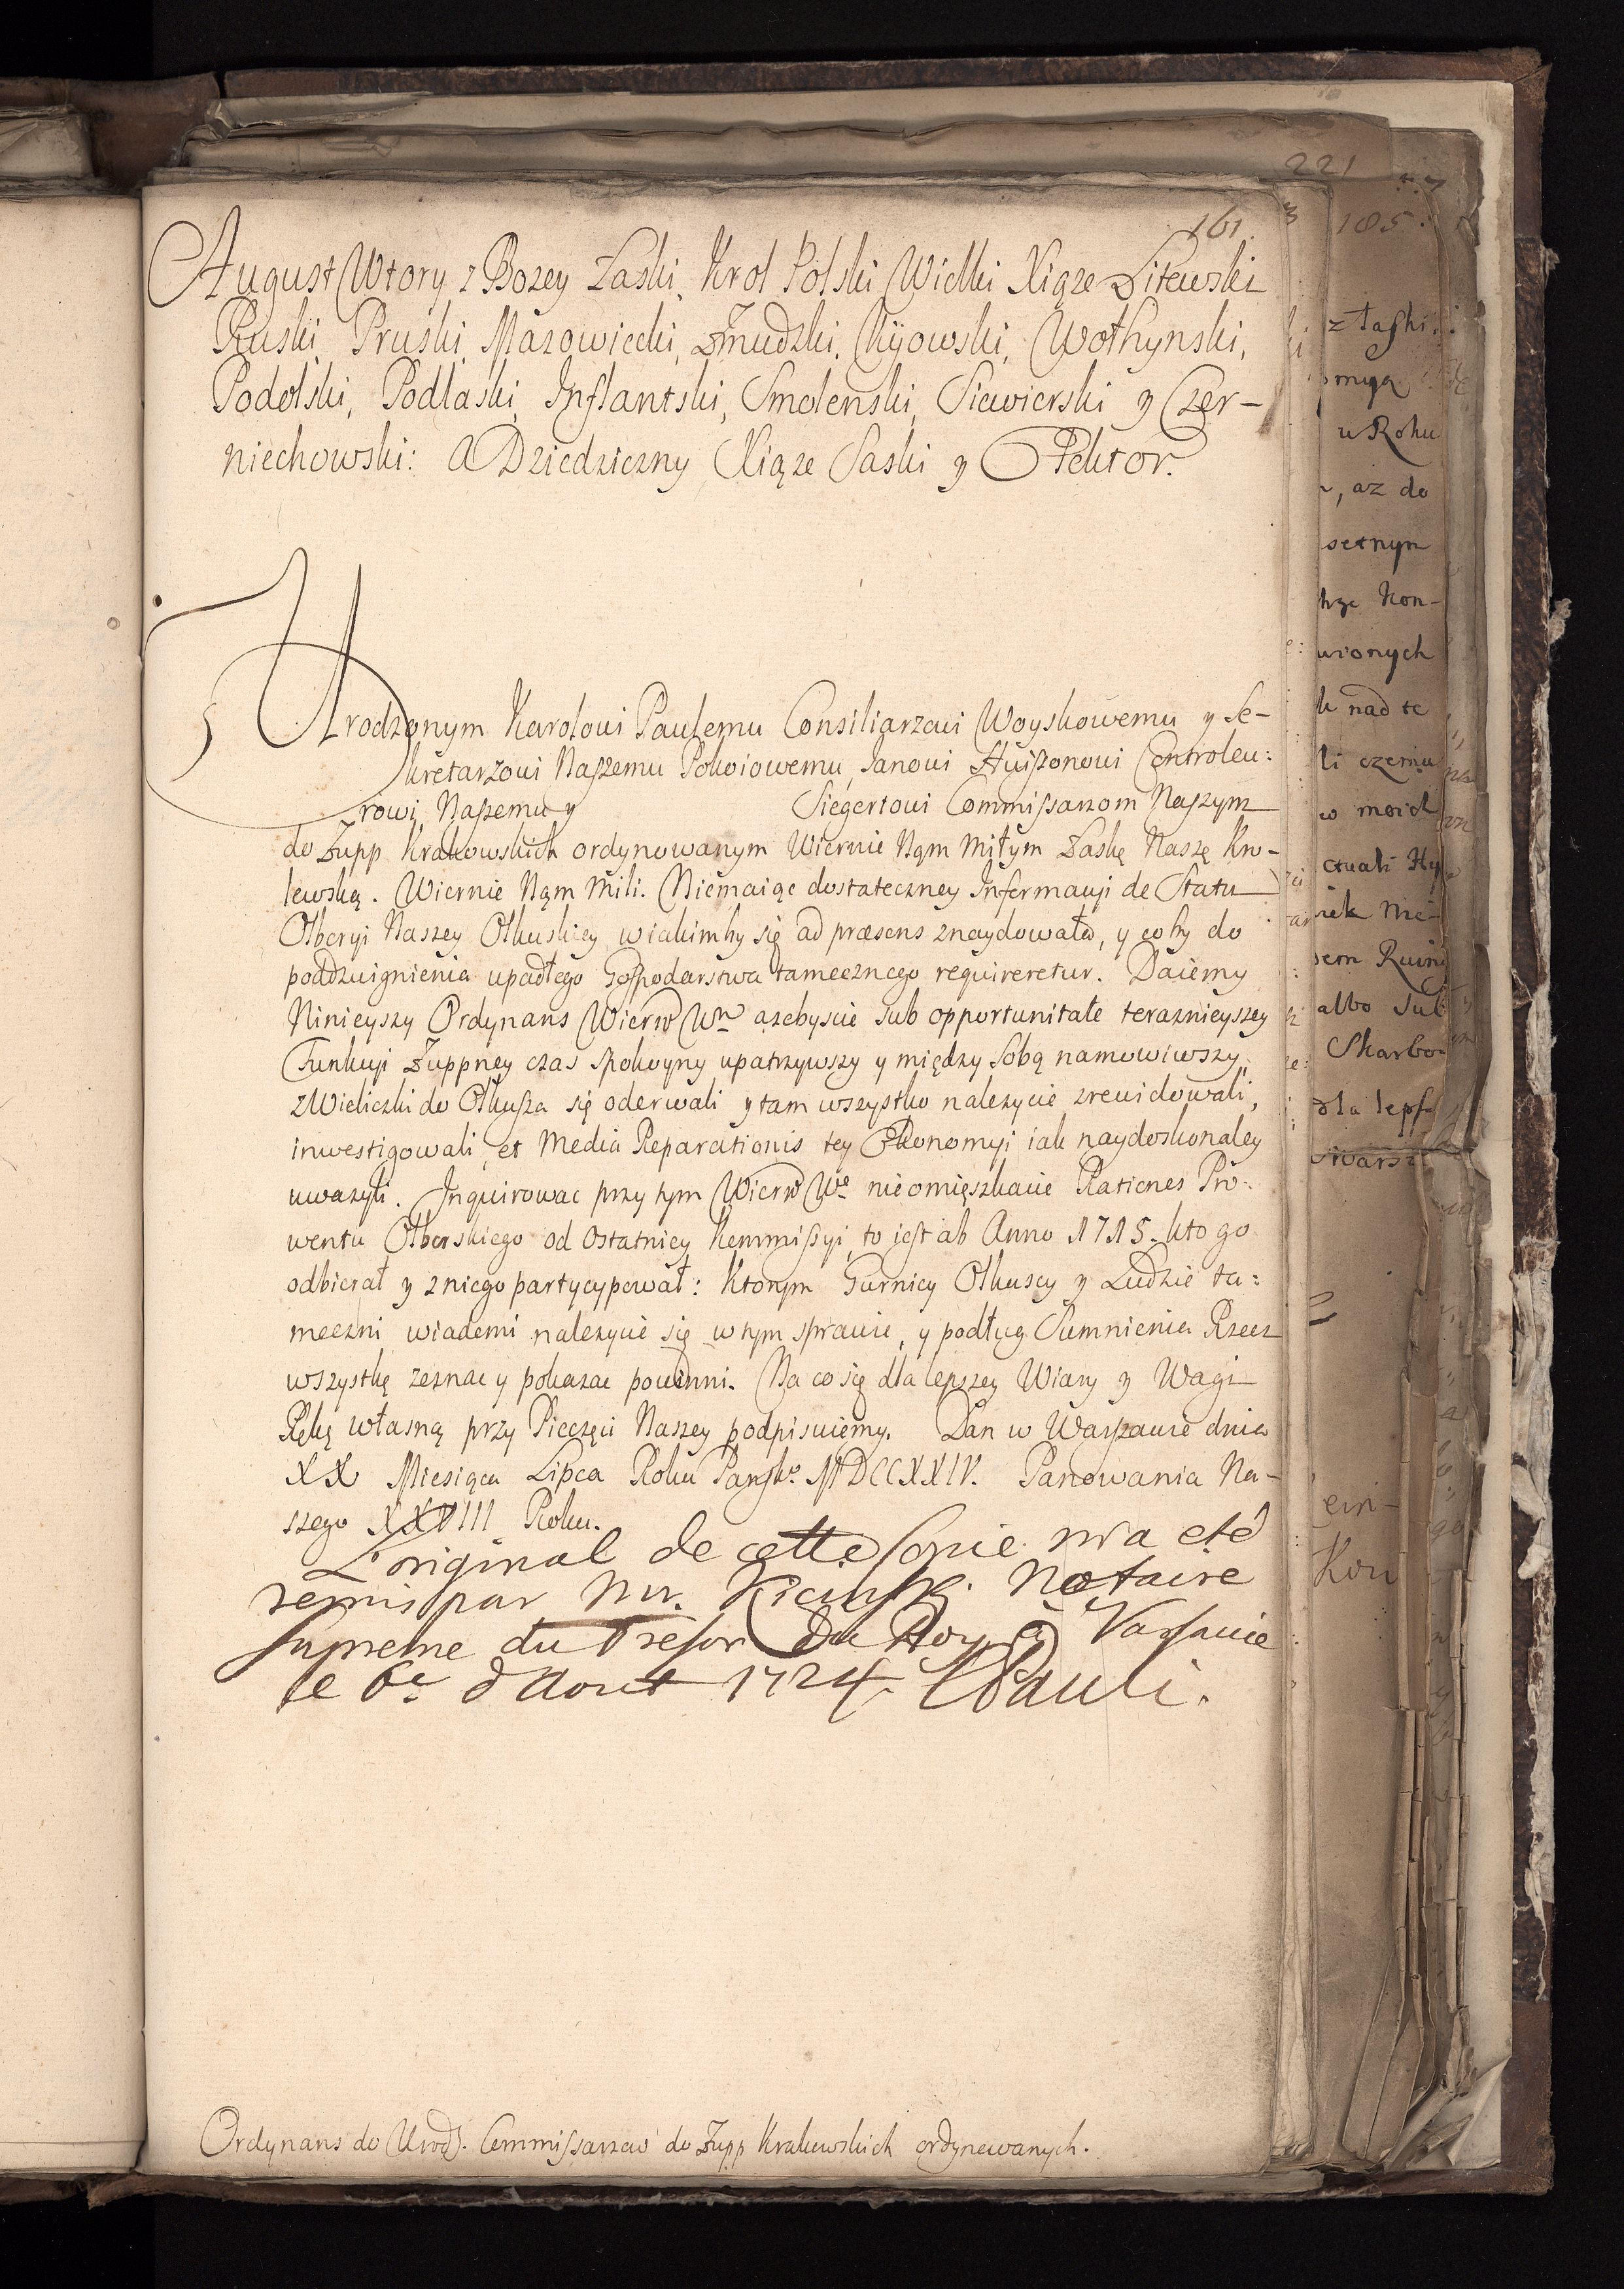 161.
August Wtory z Bozey Łaski, Krol Polski Wielki Xiąze Litewski
Ruski, Pruski, Mazowiecki, Zmudzki, Kijowski, Wołhynski,
Podolski, Podlaski, Inflantski, Smolenski, Siewierski y Czer-
niechowski: A Dziedziczny Xiąze Saski y Elektor.
Urodzonym Karolowi Paulemu Consiliarzowi Woyskowemu y Se-
kretarzowi Naszemu Pokoiowemu, Janowi Huissonowi Controleu:
rowi Naszemu y Siegertowi Commissarzom Naszym
do Zupp Krakowskich ordynowanym Wiernie Nąm Miłym Łaskę Naszę Kro-
lewską. Wiernie Nąm Mili. Niemaiąc dostateczney Informacyi de Statu
Olboryi Naszey Olkuskiey, wiakimby się ad præsens znaydowała, y coby do
poddzwignienia upadłego Gospodarstwa tamecznego requireretur. Daiemy
Ninieyszy Ordynans Wierność Wm azebyscie sub opportunitate teraznieyszey
Funkcyi Zuppney czas spokoyny upatrzywszy y między sobą namowiwszy,
z Wieliczki do Olkusza się oderwali y tam wszystko nalezycie zrewidowali,
inwestigowali, et Media Reparationis tey Ekonomyi iak naydoskonaley
uwazyli. Inquirowac przy tym Wierść We nieomięszkacie Rationes Pro-
wentu Olborskiego od ostatniey Kommissyi, to jest ab Anno 1715. kto go
odbierał y z niego partycypował: Ktorym Gurnicy Olkuscy y Ludzie ta:
meczni wiadomi nalezycie się w tym sprawie, y podług Sumnienia Rzecz
wszystkę zeznac y pokazac powinni. Na co się dla lepszey Wiary y Wagi
Ręką własną przy Pieczęci Naszey podpisuiemy. Dan w Warszawie dnia
XX Miesiąca Lipca Roku Pansko. MDCCXXIV. Panowania Na-
szego XXVIII Roku.
L'original de cette Copie m'a eté
remis par Mr. Notaire
supreme du Tresor du Roy, à Varsavie
le 6e d'Aout 1724. CPauli.
Ordynans do Urodz. Commissarzow do Zupp Krakowskich ordynowanych.
221
185
z łaski
u Roku
, az do
setnym
Kon-
wionych
nad te
li czemu
w moich
sem Ruin
albo
Skarbo
dla leps